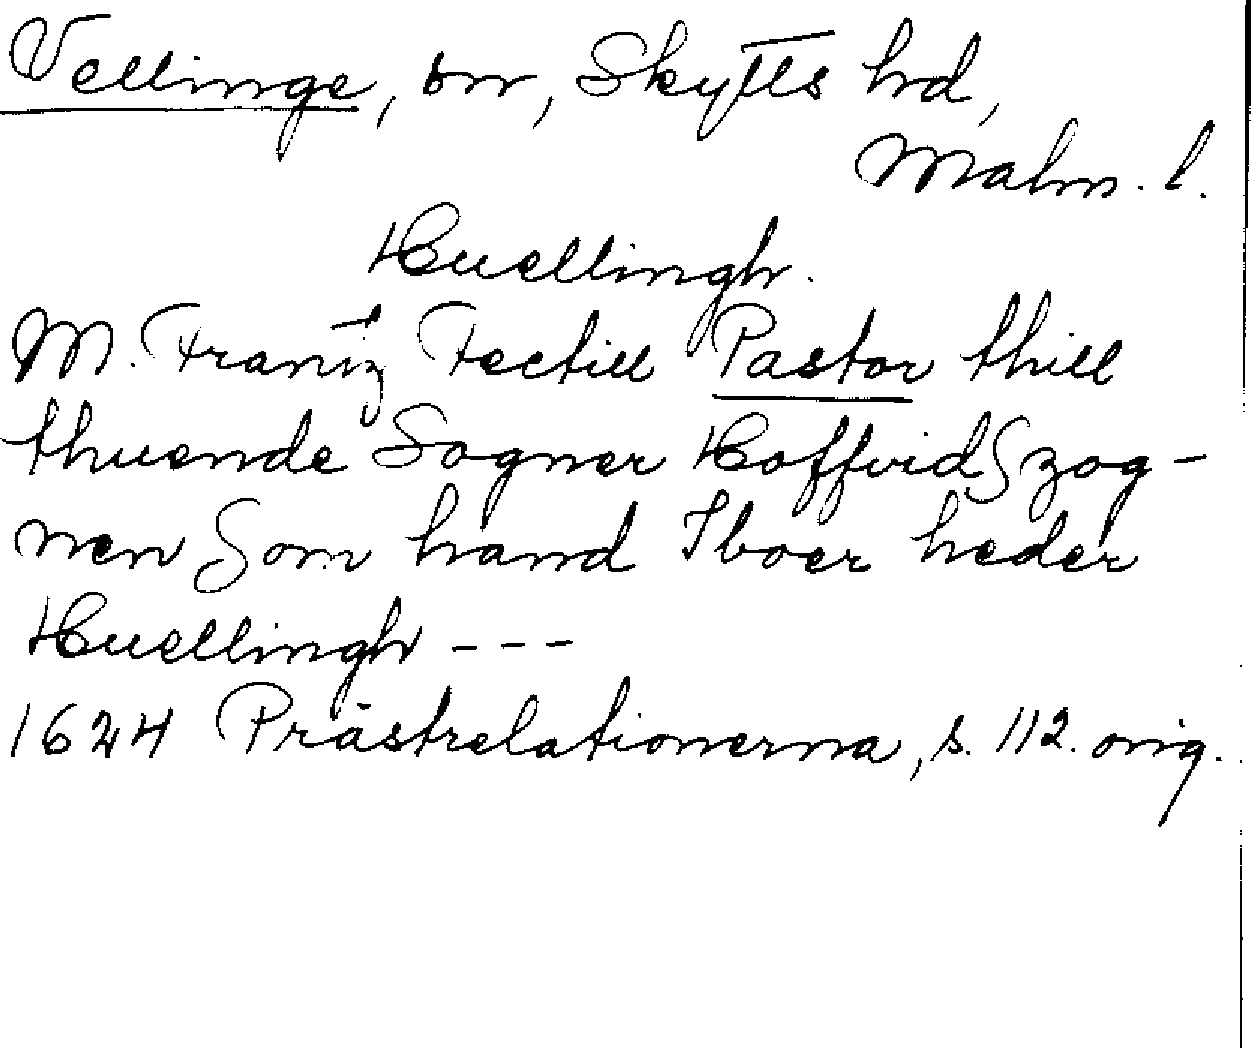 Vellinge, sn, Skytts hd,
Malm. l.
Huellingh.
M. Frantz Fectill Pastor thill
thuende Sogner Hoffvidszog-
nen Som hand Iboer heder
Huellingh ---
1624 Prästrelationerna, s. 112. orig.